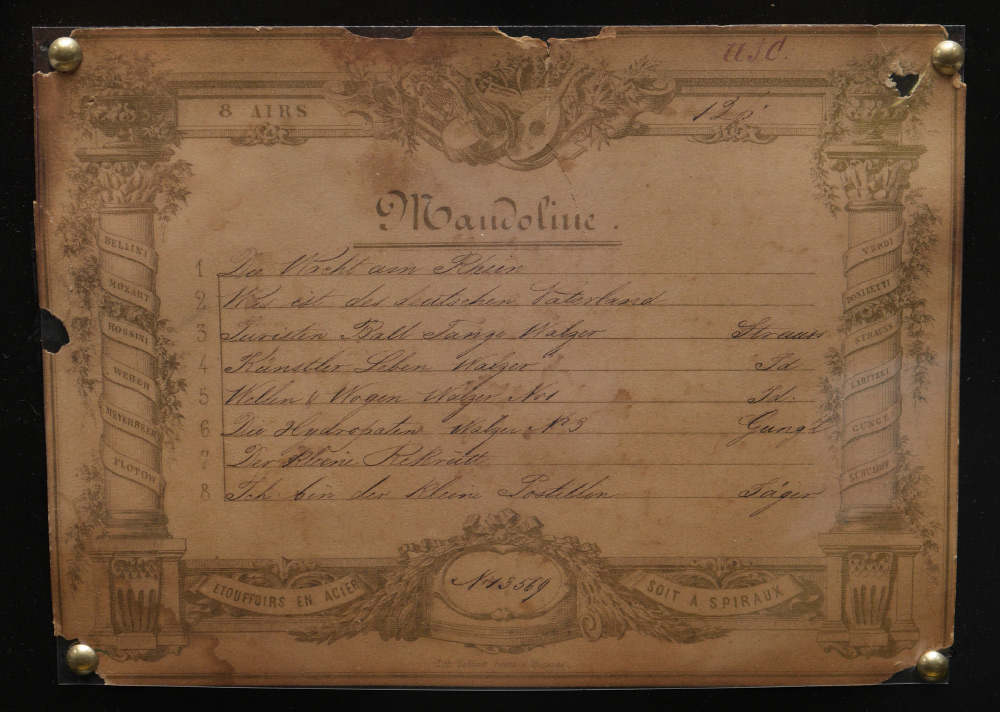 USC.
8 AIRS
Mandoline.
1 Die Wacht am Rhein
2 Was ist des deutschen Vaterland
3 Juristen Ball Tänze Walzer Strauss
4 Künstler Leben Walzer Id
5 Wellen & Wogen Walzer No 1 Id:
6 Die Hydropaten Walzer No 3 Gung'l
7 Der kleine Rekrutt
8 Ich bin der kleine Postillin Jäger
BELLINI
MOZART
ROSSINI
WEBER
MEYERBEER
FLOTOW
VERDI
DONIZETTI
STRAUSS
LABITZKI
GUNGL
SCHULOFF
ETOUFFOIRS EN ACIER
No 13569
SOIT A SPIRAUX